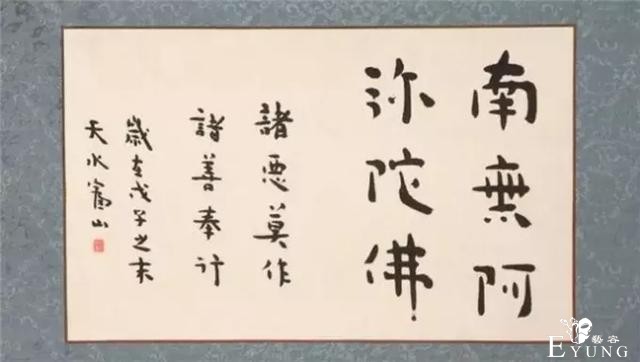 南無阿
弥陀佛
諸悪莫作
諸善奉行
歳在戊子之末
天水寓山
藝容
EYUNG